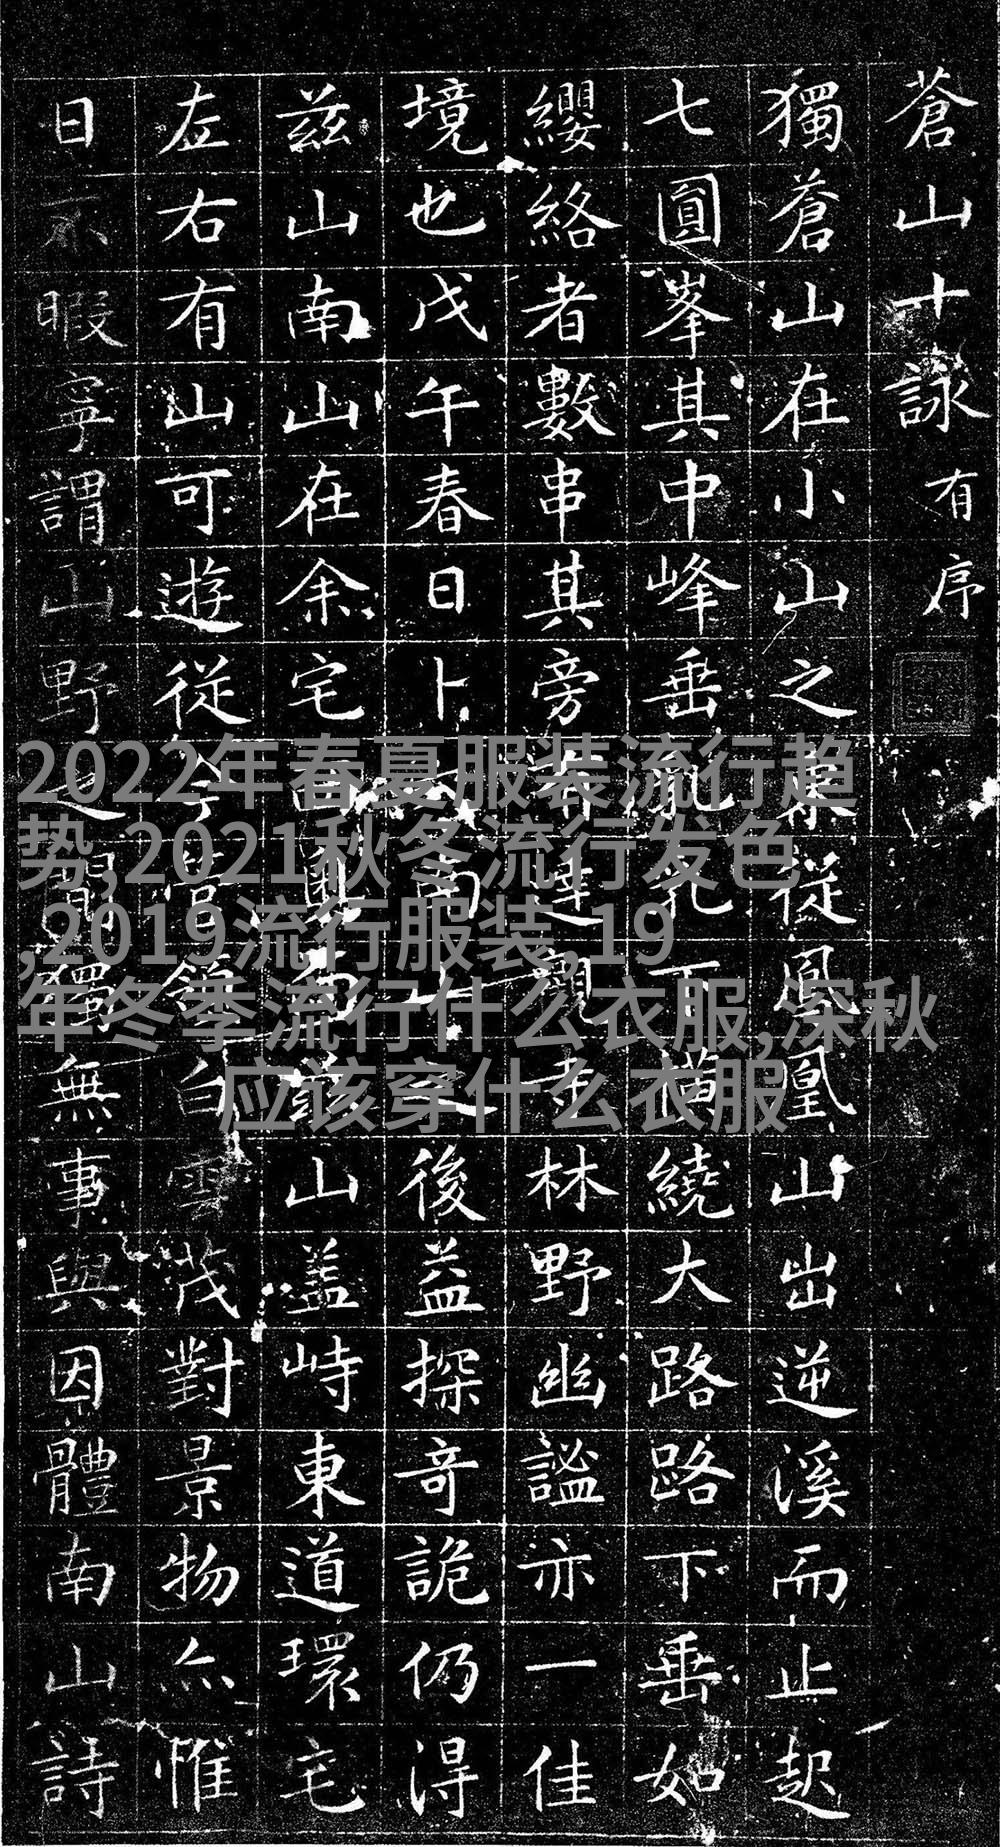 蒼山十詠有序
獨蒼山在小山之東從鳳凰山出逆溪而止起
七圓峯其中峰垂下橫繞大路路下垂如
纓絡者數串其旁連觀寺林野幽謐亦一佳
境也戊午春日卜南山之後益探奇詭仍得
茲山南山在余宅山盖峙東道環宅
左右有山可遊從今管領白雲茂對景物亦惟
日不暇寧謂山野之間獨無事與因體南山詩
2022年春夏服装流行趋
势,2021秋冬流行发色
,2019流行服装,19
年冬季流行什么衣服,深秋
应该穿什么衣服